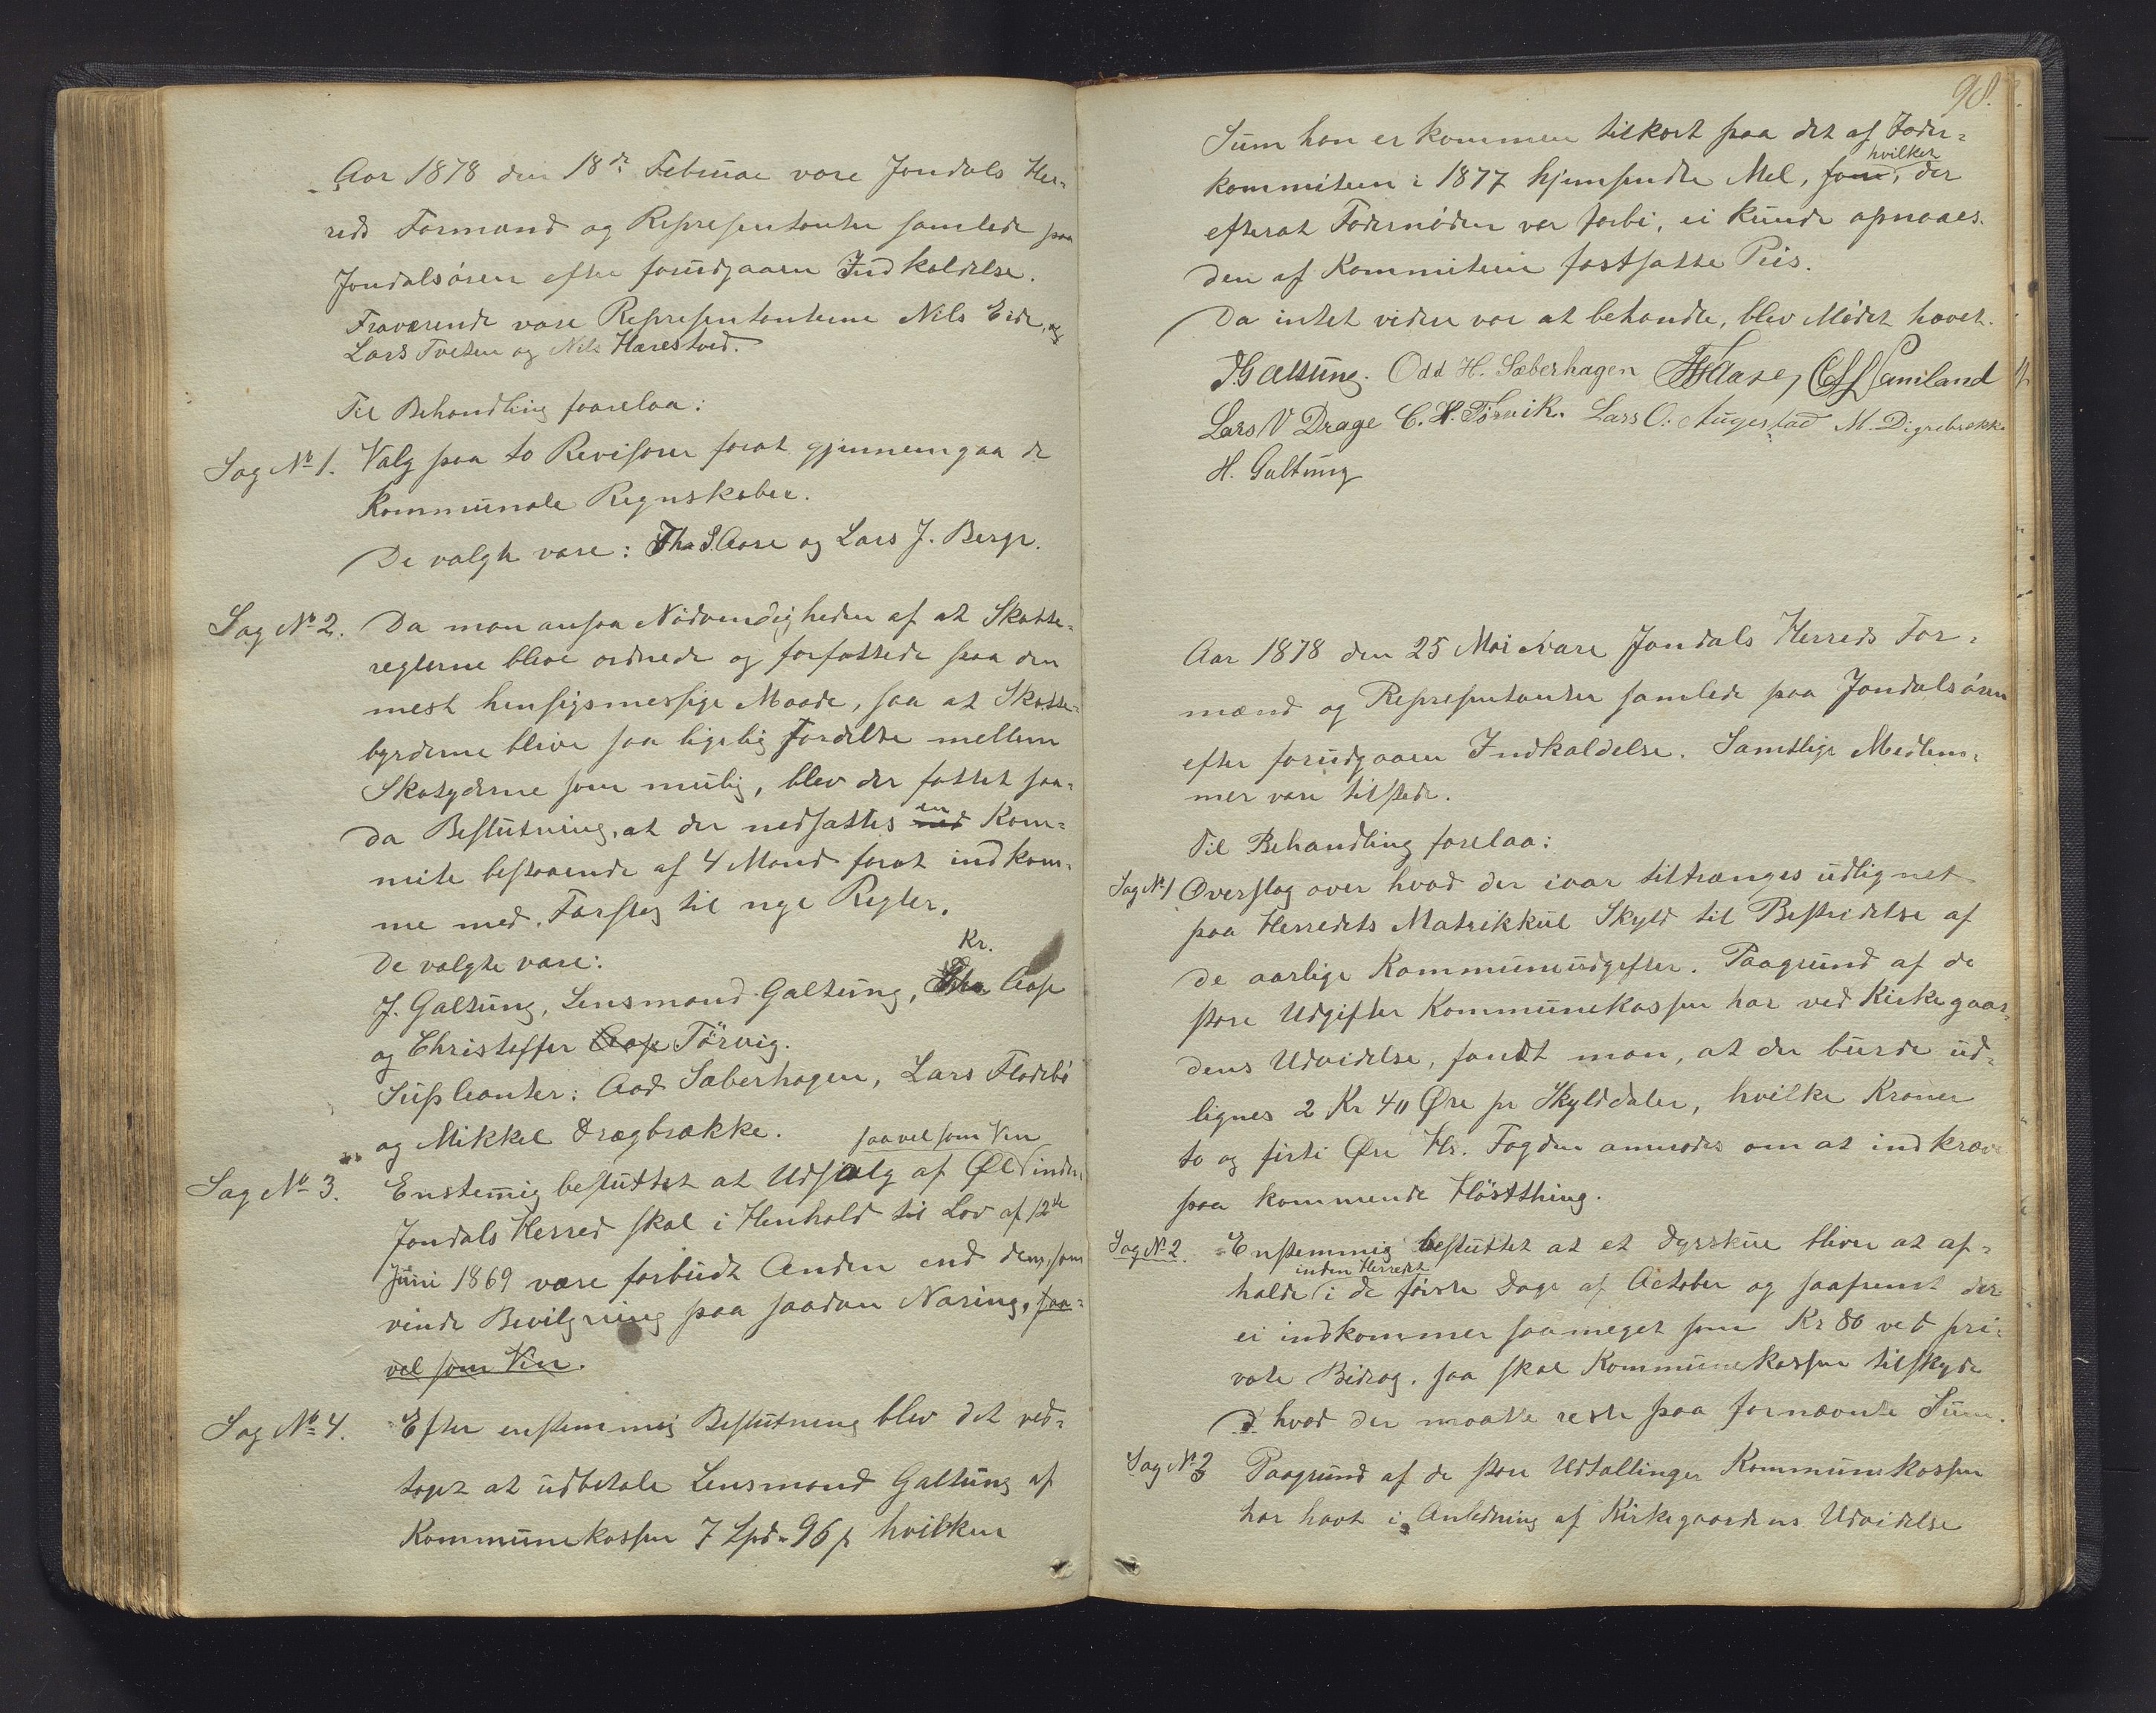 Aar 1878 den 18de Februar vare Jondals Her=
reds Formænd og Representanter samlede paa
Jondalsøren efter forudgaaen Indkaldelse.
Fraværende vare Representanterne Nils Eide, og
Lars Tveten og Nils Harestved.
Til Behandling foorelaa:
Sag No 1. Valg paa to Revisorer forat gjennemgaa de
Kommunale Regnskaber.
De valgte vare: Tho S. Aase og Lars J. Berge.
Sag No 2. Da man ansaa Nødvendigheden af at Skatte=
reglerne bleve ordnede og forfattede paa den
mest hensigsmessige Maade, saa at Skatte=
byrderne blive saa ligelig fordelte mellem
Skatyderne som mulig, blev der fattet saa=
da Beslutning, at der nedsattes en Kom=
mite bestaaende af 4 Mænd forat indkom=
me med Forslag til nye Regler.
De valgte vare:
Kr.
J. Galtung, Lensmand Galtung, Tho Aase
og Christoffer Aase Törvig.
Supleanter: Aad Saberhagen, Lars Flatebö
og Mikkel Drægbrække.
saavel som Vin
Sag No 3. Enstemig besluttet at Udsalg af Øl inden
Jondals Herred skal i Henhold til Lov af 12te
Juni 1869 være forbudt Anden end dem, som
vinde Bevilgning paa saadan Næring, saa=
vel som Vin.
Sag No 4. Efter enstemmig Beslutning blev det ved=
taget at udbetale Lensmand Galtung af
Kommunekassen 7 Spd. 96 s hvilken
98.
Sum han er kommen tilkort paa det af Foder=
hvilket
kommiteen i 1877 hjemsendte Mel, som, der
efterat Fodernøden var forbi, ei kunde opnaaes
den af Kommiteen fastsatte Pris.
Da intet videre var at behandle, blev Mödet hævet.
J Galtung. Odd H. Sæberhagen Aase, Samland
Lars V Drage C. H. Törvik. Lars O. Augestad M. Digrebrekke
H. Galtung
Aar 1878 den 25 Mai vare Jondals Herreds For=
mænd og Representanter samlede paa Jondalsören
efter forudgaaen Indkaldelse. Samtlige Medlem=
mer vare tilstede.
Til Behandling forelaa:
Sag No 1 Overslag over hvad der iaar tiltrænges udlignet
paa Herredets Matrikkul Skyld til Bestridelse af
de aarlige Kommuneudgifter. Paagrund af de
store Udgifter Kommunekassen har ved Kirkegaar=
dens Udvidelse, fandt man, at der burde ud=
lignes 2 Kr 40 Øre pr Skylddaler, hvilke Kroner
to og firti Øre Hr. Fogden anmodes om at indkræve
paa kommende Hösthing.
Sag No 2. Enstemmig besluttet at et Dyrskue bliver at af=
inden Herredet
holde i de förste Dage af October og saafremt der
ei indkommer saameget som Kr 80 ved pri=
vate Bidrag, saa skal Kommunekassen tilskyde
d hvad der maatte reste paa fornævnte Sum.
Sag No 3 Paagrund af de store Udtællinger Kommunekassen
har havt i Anledning af Kirkegaardens Udvidelse